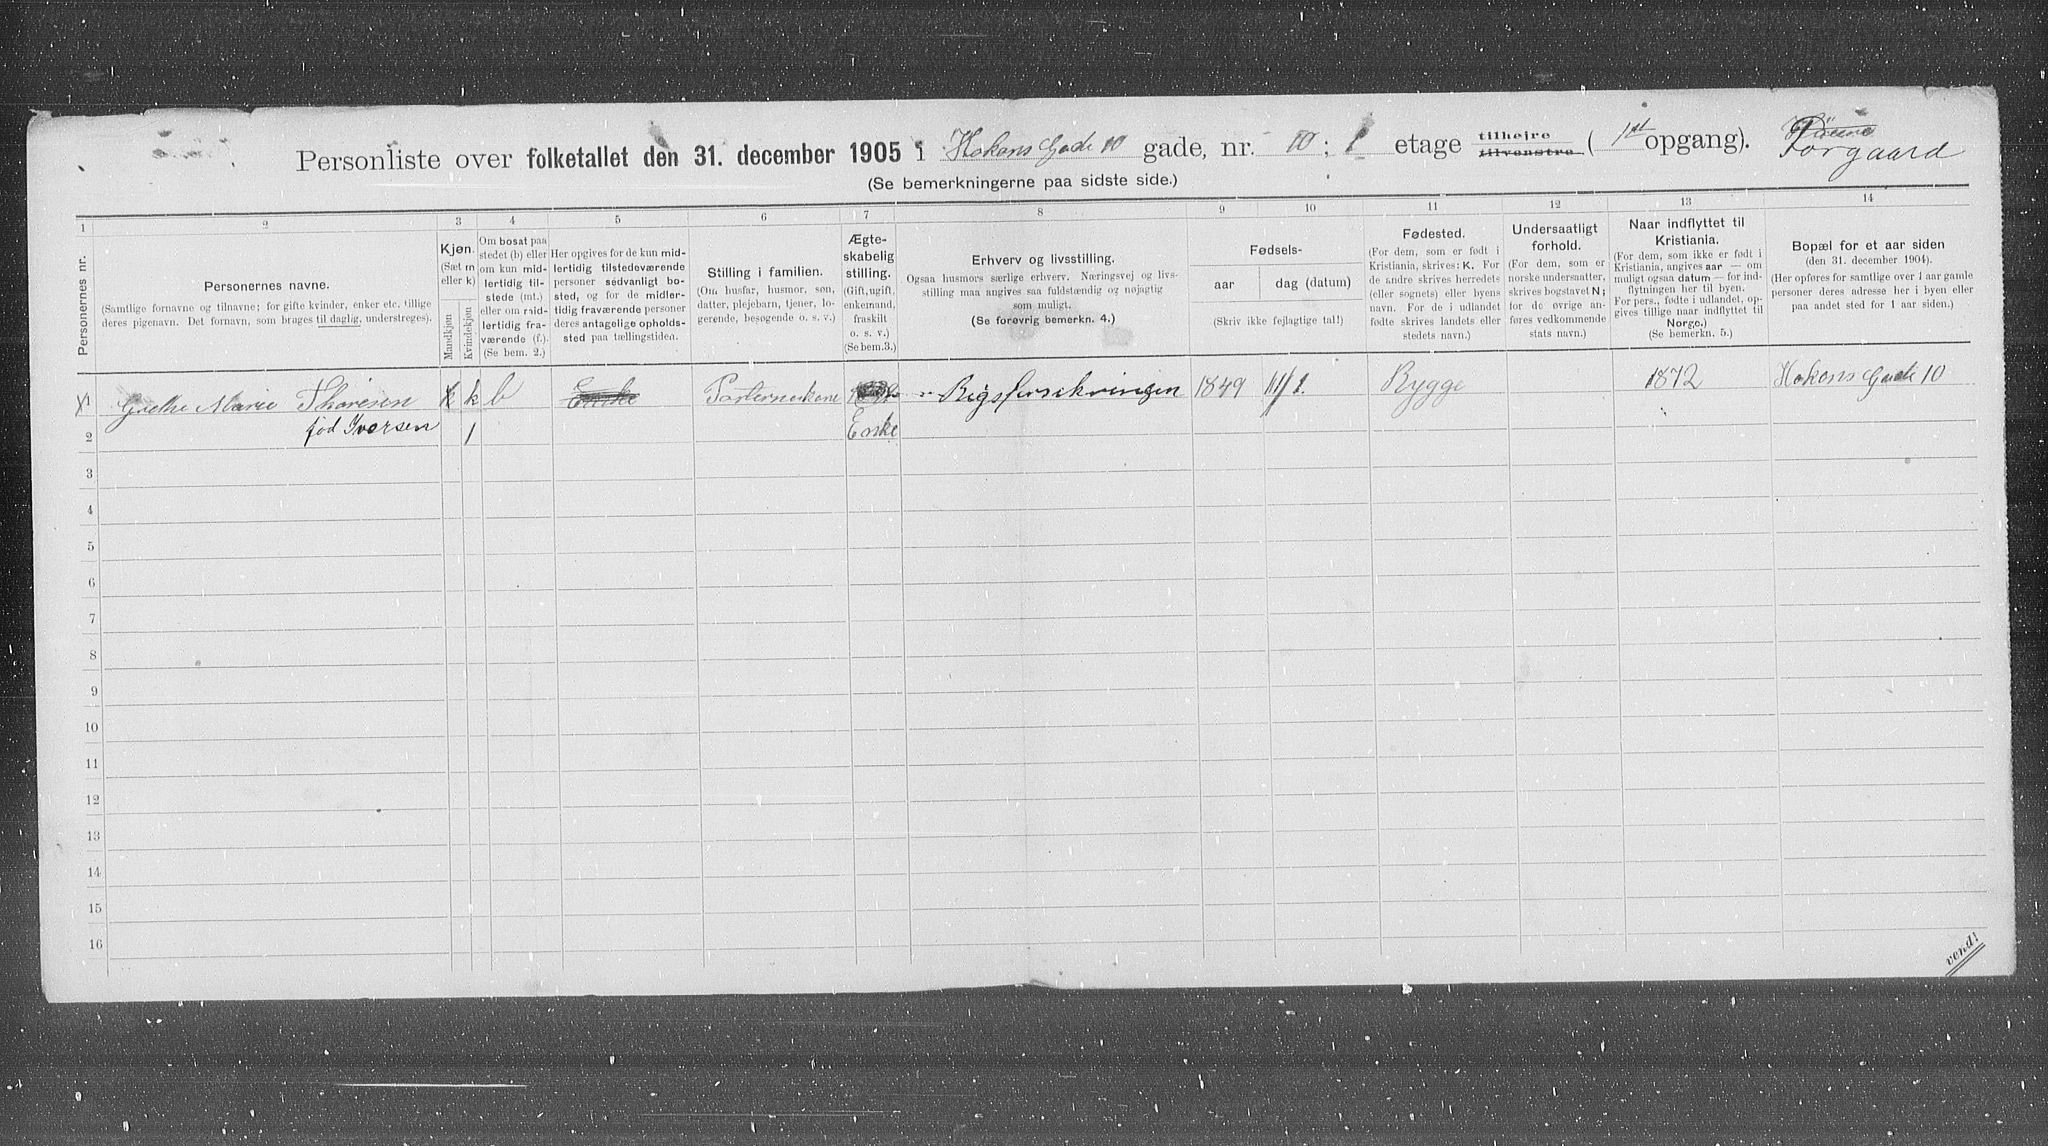 Personliste over folketallet den 31. december 1905 i Hokens Gade 10 gade, nr. 10; 1 etage tilhøire tilvenstre (1st opgang). Torgaard
(Se bemerkningerne paa sidste side.)
1 2 3 4 5 6 7 8 9 10 11 12 13 14
Personernes nr.
Personernes navne.
(Samtlige fornavne og tilnavne; for gifte kvinder, enker etc. tillige
deres pigenavn. Det fornavn, som bruges til daglig, understreges).
Kjøn.
(Sæt m
eller k)
Mandkjøn
Kvindekjøn
Om bosat paa
stedet (b) eller
om kun mid-
lertidig til-
stede (mt.)
eller om mid-
lertidig fra-
værende (f.).
(Se bem. 2.)
Her opgives for de kun mid-
lertidig tilstedeværende
personer sedvanligt bo-
sted, og for de midler-
tidig fraværende personer
deres antagelige opholds-
sted paa tællingstiden.
Stilling i familien.
(Om husfar, husmor, søn,
datter, plejebarn, tjener, lo-
gerende, besøgende o. s. v.)
Ægte-
skabelig
stilling.
(Gift, ugift,
enkemand,
fraskilt
o. s. v.)
(Se bem.3.)
Erhverv og livsstilling.
Ogsaa husmors særlige erhverv. Næringsvej og livs-
stilling maa angives saa fuldstændig og nøjagtig
som muligt.
(Se forøvrig bemerkn. 4.)
Fødsels-
aar
dag (datum)
(Skriv ikke fejlagtige tal!)
Fødested.
(For dem, som er født i
Kristiania, skrives: K. For
de andre skrives herredets
(eller sognets) eller byens
navn. For de i udlandet
fødte skrives landets eller
stedets navn.)
Undersaatligt
forhold.
(For dem, som er
norske undersaatter,
skrives bogstavet N;
for de øvrige an-
føres vedkommende
stats navn.)
Naar indflyttet til
Kristiania.
(For dem, som ikke er født i
Kristiania, angives aar — om
muligt ogsaa datum — for ind-
flytningen her til byen.
For pers., fødte i udlandet, op-
gives tillige naar indflyttet til
Norge.)
(Se bemerkn. 5.)
Bopæl for et aar siden
(den 31. december 1904).
(Her opføres for samtlige over 1 aar gamle
personer deres adresse her i byen eller
paa andet sted for 1 aar siden.)
1 Grethe Marie Thoresen k k b Enke Portnerkone Rigsforsikringen 1849 11/1. Rygge 1872 Hokens Gade 10
2 fød Iversen 1 Enke
3
4
5
6
7
8
9
10
11
12
13
14
15
16
vend!